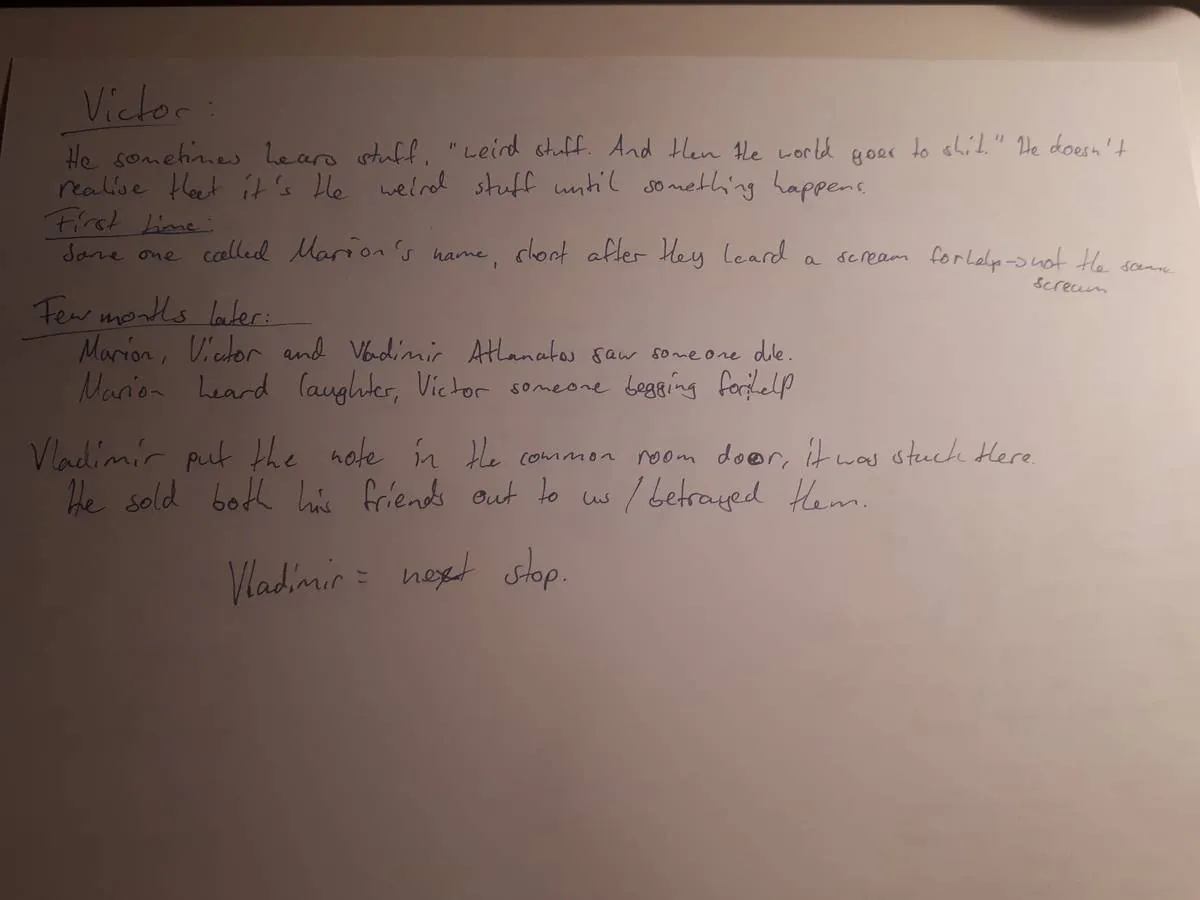 Victor:
He sometimes hears stuff, "weird stuff. And then the world goes to shit." He doesn't
realise that it's the weird stuff until something happens.
First time:
Some one called Marion's name, short after they heard a scream for help -> not the same
scream
Few months later:
Marion, Victor and Vladimir Athanatos saw someone die.
Marion heard laughter, Victor someone begging for help
Vladimir put the note in the common room door, it was stuck there.
He sold both his friends out to us / betrayed them.
Vladimir = next stop.